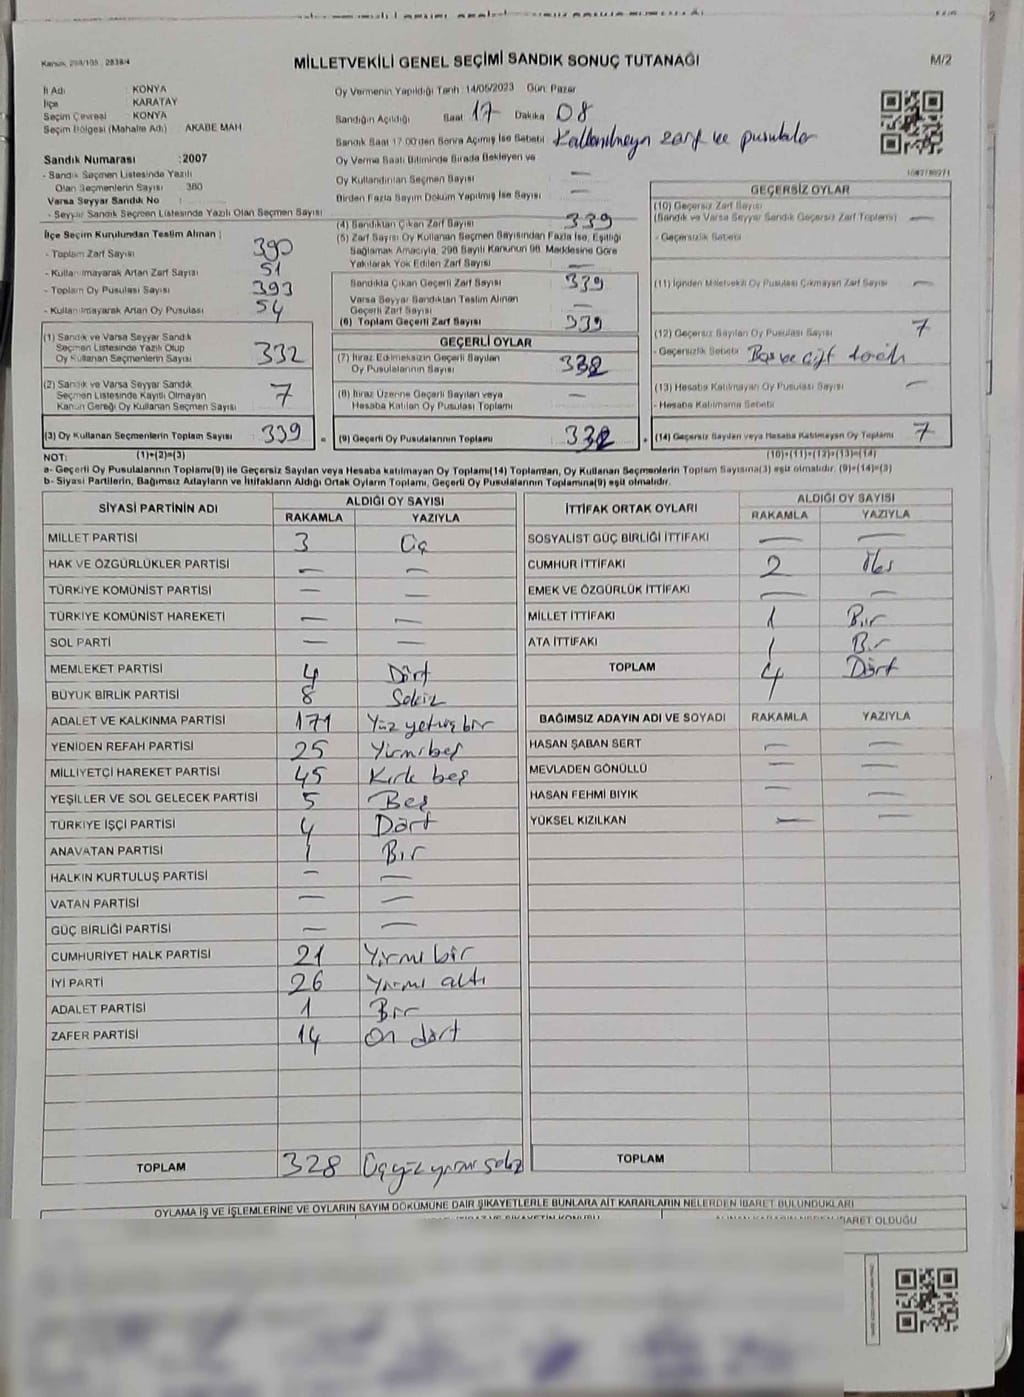 MİLLETVEKİLİ GENEL SEÇİMİ SANDIK SONUÇ TUTANAĞI
M/2
İl Adı : KONYA
İlçe : KARATAY
Seçim Çevresi : KONYA
Seçim Bölgesi (Mahalle Adı) : AKABE MAH
Sandık Numarası : 2007
- Sandık Seçmen Listesinde Yazılı
Olan Seçmenlerin Sayısı : 380
Varsa Seyyar Sandık No :
- Seyyar Sandık Seçmen Listesinde Yazılı Olan Seçmen Sayısı
Oy Vermenin Yapıldığı Tarih :14/05/2023 Gün: Pazar
Sandığın Açıldığı Saat 17 Dakika 08
Sandık Saat 17.00'den Sonra Açımış İse Sebebi : zarf ve pusulalar
Oy Verme Saati Bitiminde Sırada Bekleyen ve
Oy Kullandırılan Seçmen Sayısı —
Birden Fazla Sayım Döküm Yapılmış İse Sayısı —
İlçe Seçim Kurulundan Teslim Alınan ;
- Toplam Zarf Sayısı 390
- Kullanılmayarak Artan Zarf Sayısı 51
- Toplam Oy Pusulası Sayısı 393
- Kullanılmayarak Artan Oy Pusulası 54
(1) Sandık ve Varsa Seyyar Sandık
Seçmen Listesinde Yazılı Olup
Oy Kullanan Seçmenlerin Sayısı 332
(2) Sandık ve Varsa Seyyar Sandık
Seçmen Listesinde Kayıtlı Olmayan
Kanun Gereği Oy Kullanan Seçmen Sayısı 7
(3) Oy Kullanan Seçmenlerin Toplam Sayısı 339
(4) Sandıktan Çıkan Zarf Sayısı 339
(5) Zarf Sayısı Oy Kullanan Seçmen Sayısından Fazla İse, Eşitliği
Sağlamak Amacıyla, 298 Sayılı Kanunun 98. Maddesine Göre
Yakılarak Yok Edilen Zarf Sayısı —
Sandıkta Çıkan Geçerli Zarf Sayısı 339
Varsa Seyyar Sandıktan Teslim Alınan
Geçerli Zarf Sayısı —
(6) Toplam Geçerli Zarf Sayısı 339
GEÇERLİ OYLAR
(7) İtiraz Edilmeksizin Geçerli Sayılan
Oy Pusulalarının Sayısı 332
(8) İtiraz Üzerine Geçerli Sayılan veya
Hesaba Katılan Oy Pusulası Toplamı —
(9) Geçerli Oy Pusulalarının Toplamı 332
GEÇERSİZ OYLAR
(10) Geçersiz Zarf Sayısı
(Sandık ve Varsa Seyyar Sandık Geçersiz Zarf Toplamı) —
- Geçersizlik Sebebi
(11) İçinden Milletvekili Oy Pusulası Çıkmayan Zarf Sayısı —
(12) Geçersiz Sayılan Oy Pusulası Sayısı 7
- Geçersizlik Sebebi : Boş ve çift tercih
(13) Hesaba Katılmayan Oy Pusulası Sayısı —
- Hesaba Katılmama Sebebi
(14) Geçersiz Sayılan veya Hesaba Katılmayan Oy Toplamı 7
NOT: (1)+(2)=(3) (10)+(11)+(12)+(13)=(14)
a- Geçerli Oy Pusulalarının Toplamı(9) ile Geçersiz Sayılan veya Hesaba katılmayan Oy Toplamı(14) Toplamları, Oy Kullanan Seçmenlerin Toplam Sayısına(3) eşit olmalıdır. (9)+(14)=(3)
b- Siyasi Partilerin, Bağımsız Adayların ve İttifakların Aldığı Ortak Oyların Toplamı, Geçerli Oy Pusulalarının Toplamına(9) eşit olmalıdır.
SİYASİ PARTİNİN ADI ALDIĞI OY SAYISI
RAKAMLA YAZIYLA
MİLLET PARTİSİ 3 Üç
HAK VE ÖZGÜRLÜKLER PARTİSİ — —
TÜRKİYE KOMÜNİST PARTİSİ — —
TÜRKİYE KOMÜNİST HAREKETİ — —
SOL PARTİ — —
MEMLEKET PARTİSİ 4 Dört
BÜYÜK BİRLİK PARTİSİ 8 Sekiz
ADALET VE KALKINMA PARTİSİ 171 Yüz yetmiş bir
YENİDEN REFAH PARTİSİ 25 Yirmi beş
MİLLİYETÇİ HAREKET PARTİSİ 45 Kırk beş
YEŞİLLER VE SOL GELECEK PARTİSİ 5 Beş
TÜRKİYE İŞÇİ PARTİSİ 4 Dört
ANAVATAN PARTİSİ 1 Bir
HALKIN KURTULUŞ PARTİSİ — —
VATAN PARTİSİ — —
GÜÇ BİRLİĞİ PARTİSİ — —
CUMHURİYET HALK PARTİSİ 21 Yirmi bir
İYİ PARTİ 26 Yirmi altı
ADALET PARTİSİ 1 Bir
ZAFER PARTİSİ 14 On dört
TOPLAM 328 Üçyüz yirmi sekiz
İTTİFAK ORTAK OYLARI ALDIĞI OY SAYISI
RAKAMLA YAZIYLA
SOSYALİST GÜÇ BİRLİĞİ İTTİFAKI — —
CUMHUR İTTİFAKI 2 İki
EMEK VE ÖZGÜRLÜK İTTİFAKI — —
MİLLET İTTİFAKI 1 Bir
ATA İTTİFAKI 1 Bir
TOPLAM 4 Dört
BAĞIMSIZ ADAYIN ADI VE SOYADI RAKAMLA YAZIYLA
HASAN ŞABAN SERT — —
MEVLADEN GÖNÜLLÜ — —
HASAN FEHMİ BIYIK — —
YÜKSEL KIZILKAN — —
TOPLAM
OYLAMA İŞ VE İŞLEMLERİNE VE OYLARIN SAYIM DÖKÜMÜNE DAİR ŞİKAYETLERLE BUNLARA AİT KARARLARIN NELERDEN İBARET BULUNDUKLARI